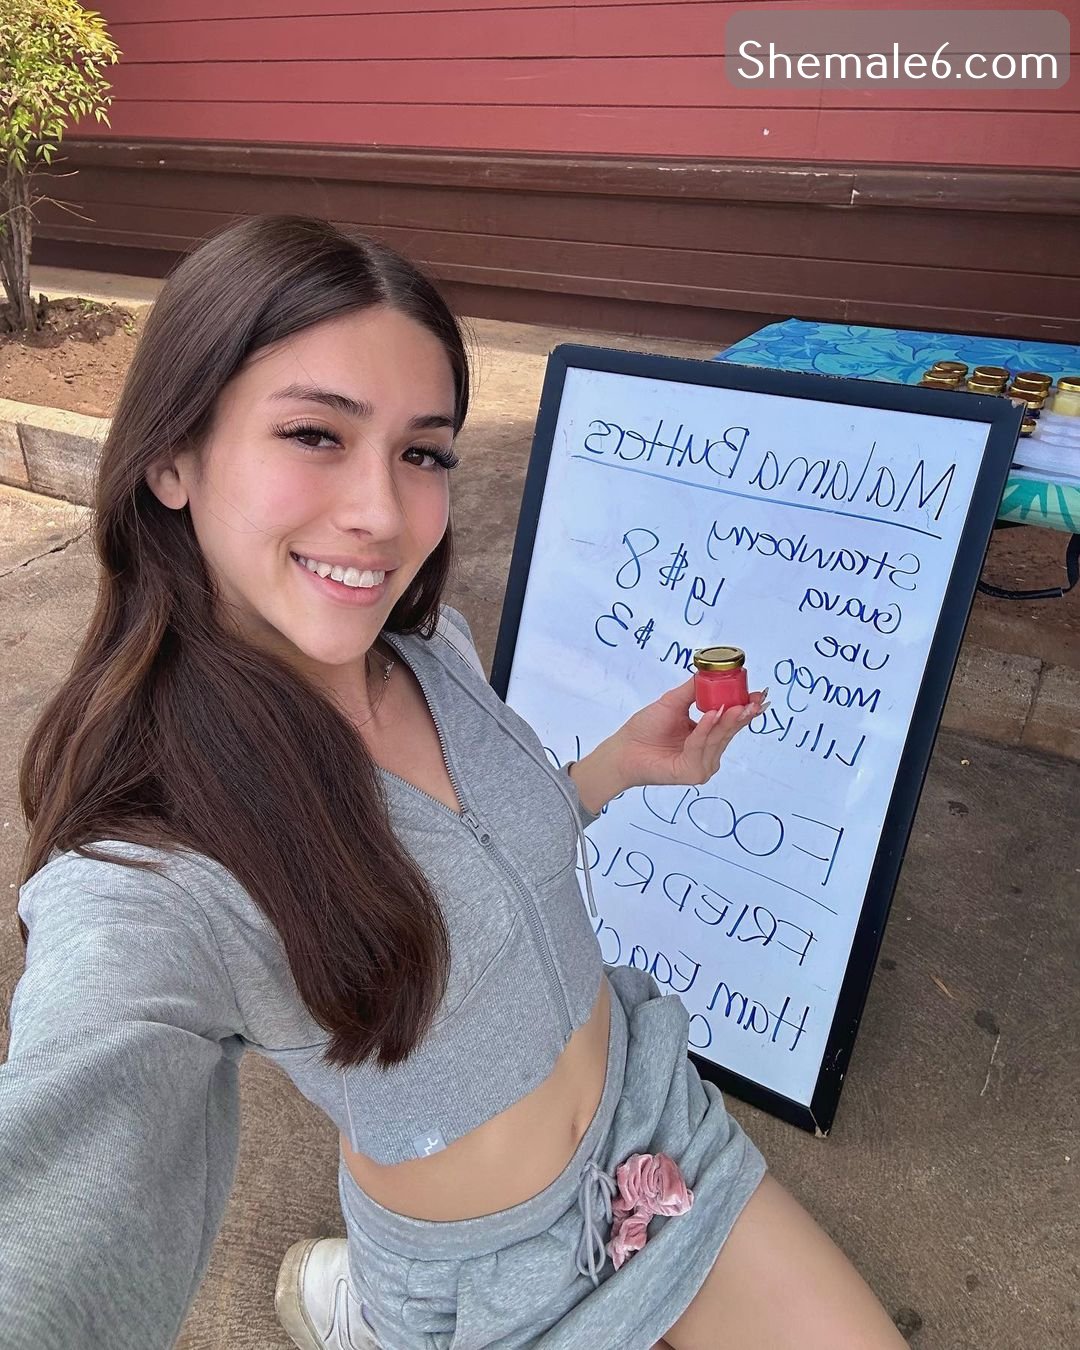 Shemale6.com
Malama Butters
Strawberry
Guava lg $8
ube
mango sm $3
Liliko
FOOD
FRIED RIC
Ham Egg